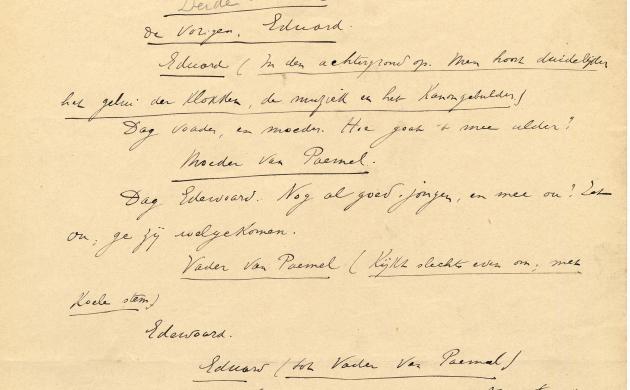 Derde
De Vorigen, Eduard.
Eduard (In den achtergrond op. Men hoort duidelijker
het gelui der klokken, de muziek en het kanongebulder.)
Dag voader, en moeder. Hoe goat 't mee ulder?
Moeder Van Paemel.
Dag Edewoard. Nog al goed, jongen, en mee ou? Zet
ou, ge zij welgekomen.
Vader Van Paemel (Kijkt slechts even om; met
koele stem)
Edewoard.
Eduard (tot Vader Van Paemel)